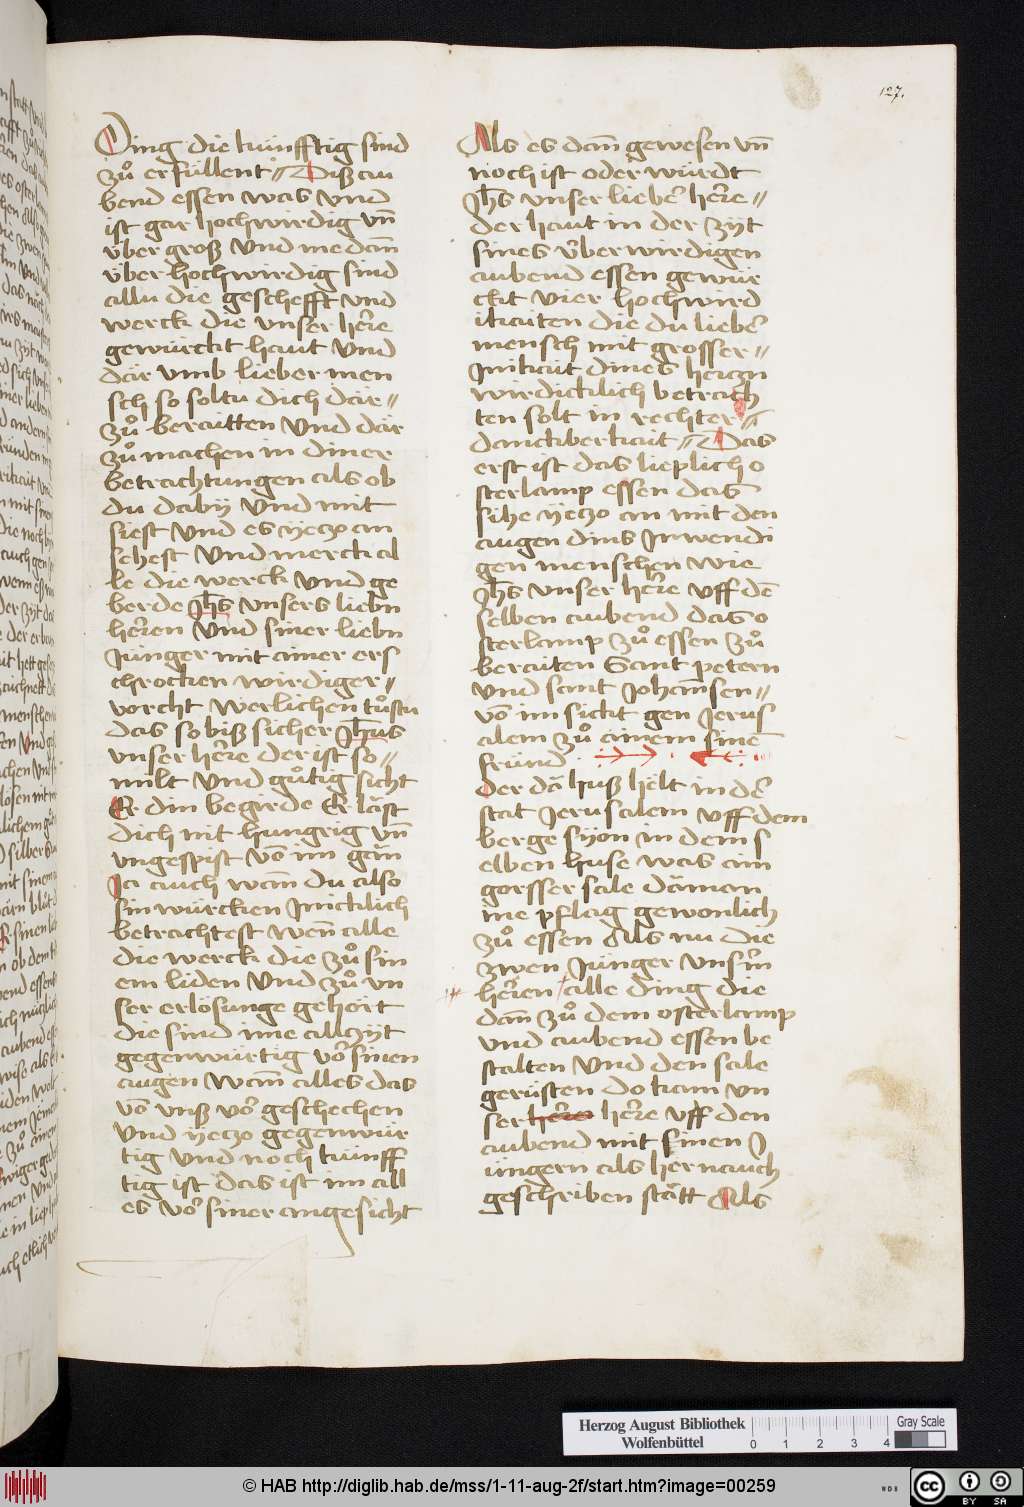 127.
Ding die künfftig sind
zů erfüllent Disz au
bend essen was vnd
ist gar hochwirdig vn̄
über grosz vnd me dan̄
über hochwirdig sind
allu die geschefft vnd
werck die vnser her̄e
gewürckt haut vnd
dar vmb lieber men
sch so soltu dich där
zů beraitten vnd där
zů machen in diner
betrachtungen als ob
du dabÿ vnd mit
siest vnd es ÿeczo an
sehest vnd merck al
le die werck vnd ge
berde Jh̄s vnsers liebn
her̄en vnd siner liebn
Jünger mit ainer ers
chrocken wirdiger
vorcht werlichen tůstu
das so bisz sicher Jh̄us
vnser her̄e der ist so
milt vnd gůtig sicht
Er din begirde Er läst
dich nit hungrig vn̄
vngespist vō im gān
Ja auch wan̄ du also
sin würcken Jnicklich
betrachtest wen̄ alle
die werck die zů sin
em liden vnd zů vn
ser erlösunge gehört
die sind ime allczÿt
gegenwürtig vor sinen
augen wan̄ alles das
vō vnsz vor geschechen
vnd ÿeczo gegenwür
tig vnd noch künff
tig ist das ist im all
es vor siner angesicht
Als es dan̄ gewesen vn̄
noch ist oder würdt
Jh̄s vnser lieber her̄e
der haut in der zÿt
sines überwirdigen
aubend essen gewür
ckt vier hochwird
ikaiten die du lieber
mensch mit grosser
Jnikait dines herczn
wirdicklich betrach
ten solt in rechter
danckberkait Das
erst ist das lieplich o
sterlamp essen das
sihe ÿeczo an mit den
augen dins Jnwendi
gen menschen wie
Jh̄s vnser her̄e vff dē
selben aubend das o
sterlamp zů essen zů
beraiten Sant petern
vnd sant Johan̄sen
vō im sickt gen Jerus
alem zů ainem sinē
fründ
Der dā husz helt in der
stat Jerusalem vff dem
berge sÿon in dem s
elben huse was ain
gorsser sale däman
ine pflag gewonlich
zů essen Als nu die
zwen Jünger vnsrn
her̄en alle ding die
dan̄ zů dem osterlamp
vnd aubend essen be
stalten vnd den sale
gerüsten do kam vn
ser her̄e vff den
aubend mit sinen J
üngern als hernauch
geschriben stätt Als
Herzog August Bibliothek
Wolfenbüttel
0 1 2 3 4
Gray Scale
© HAB http://diglib.hab.de/mss/1-11-aug-2f/start.htm?image=00259
WDB
cc BY SA